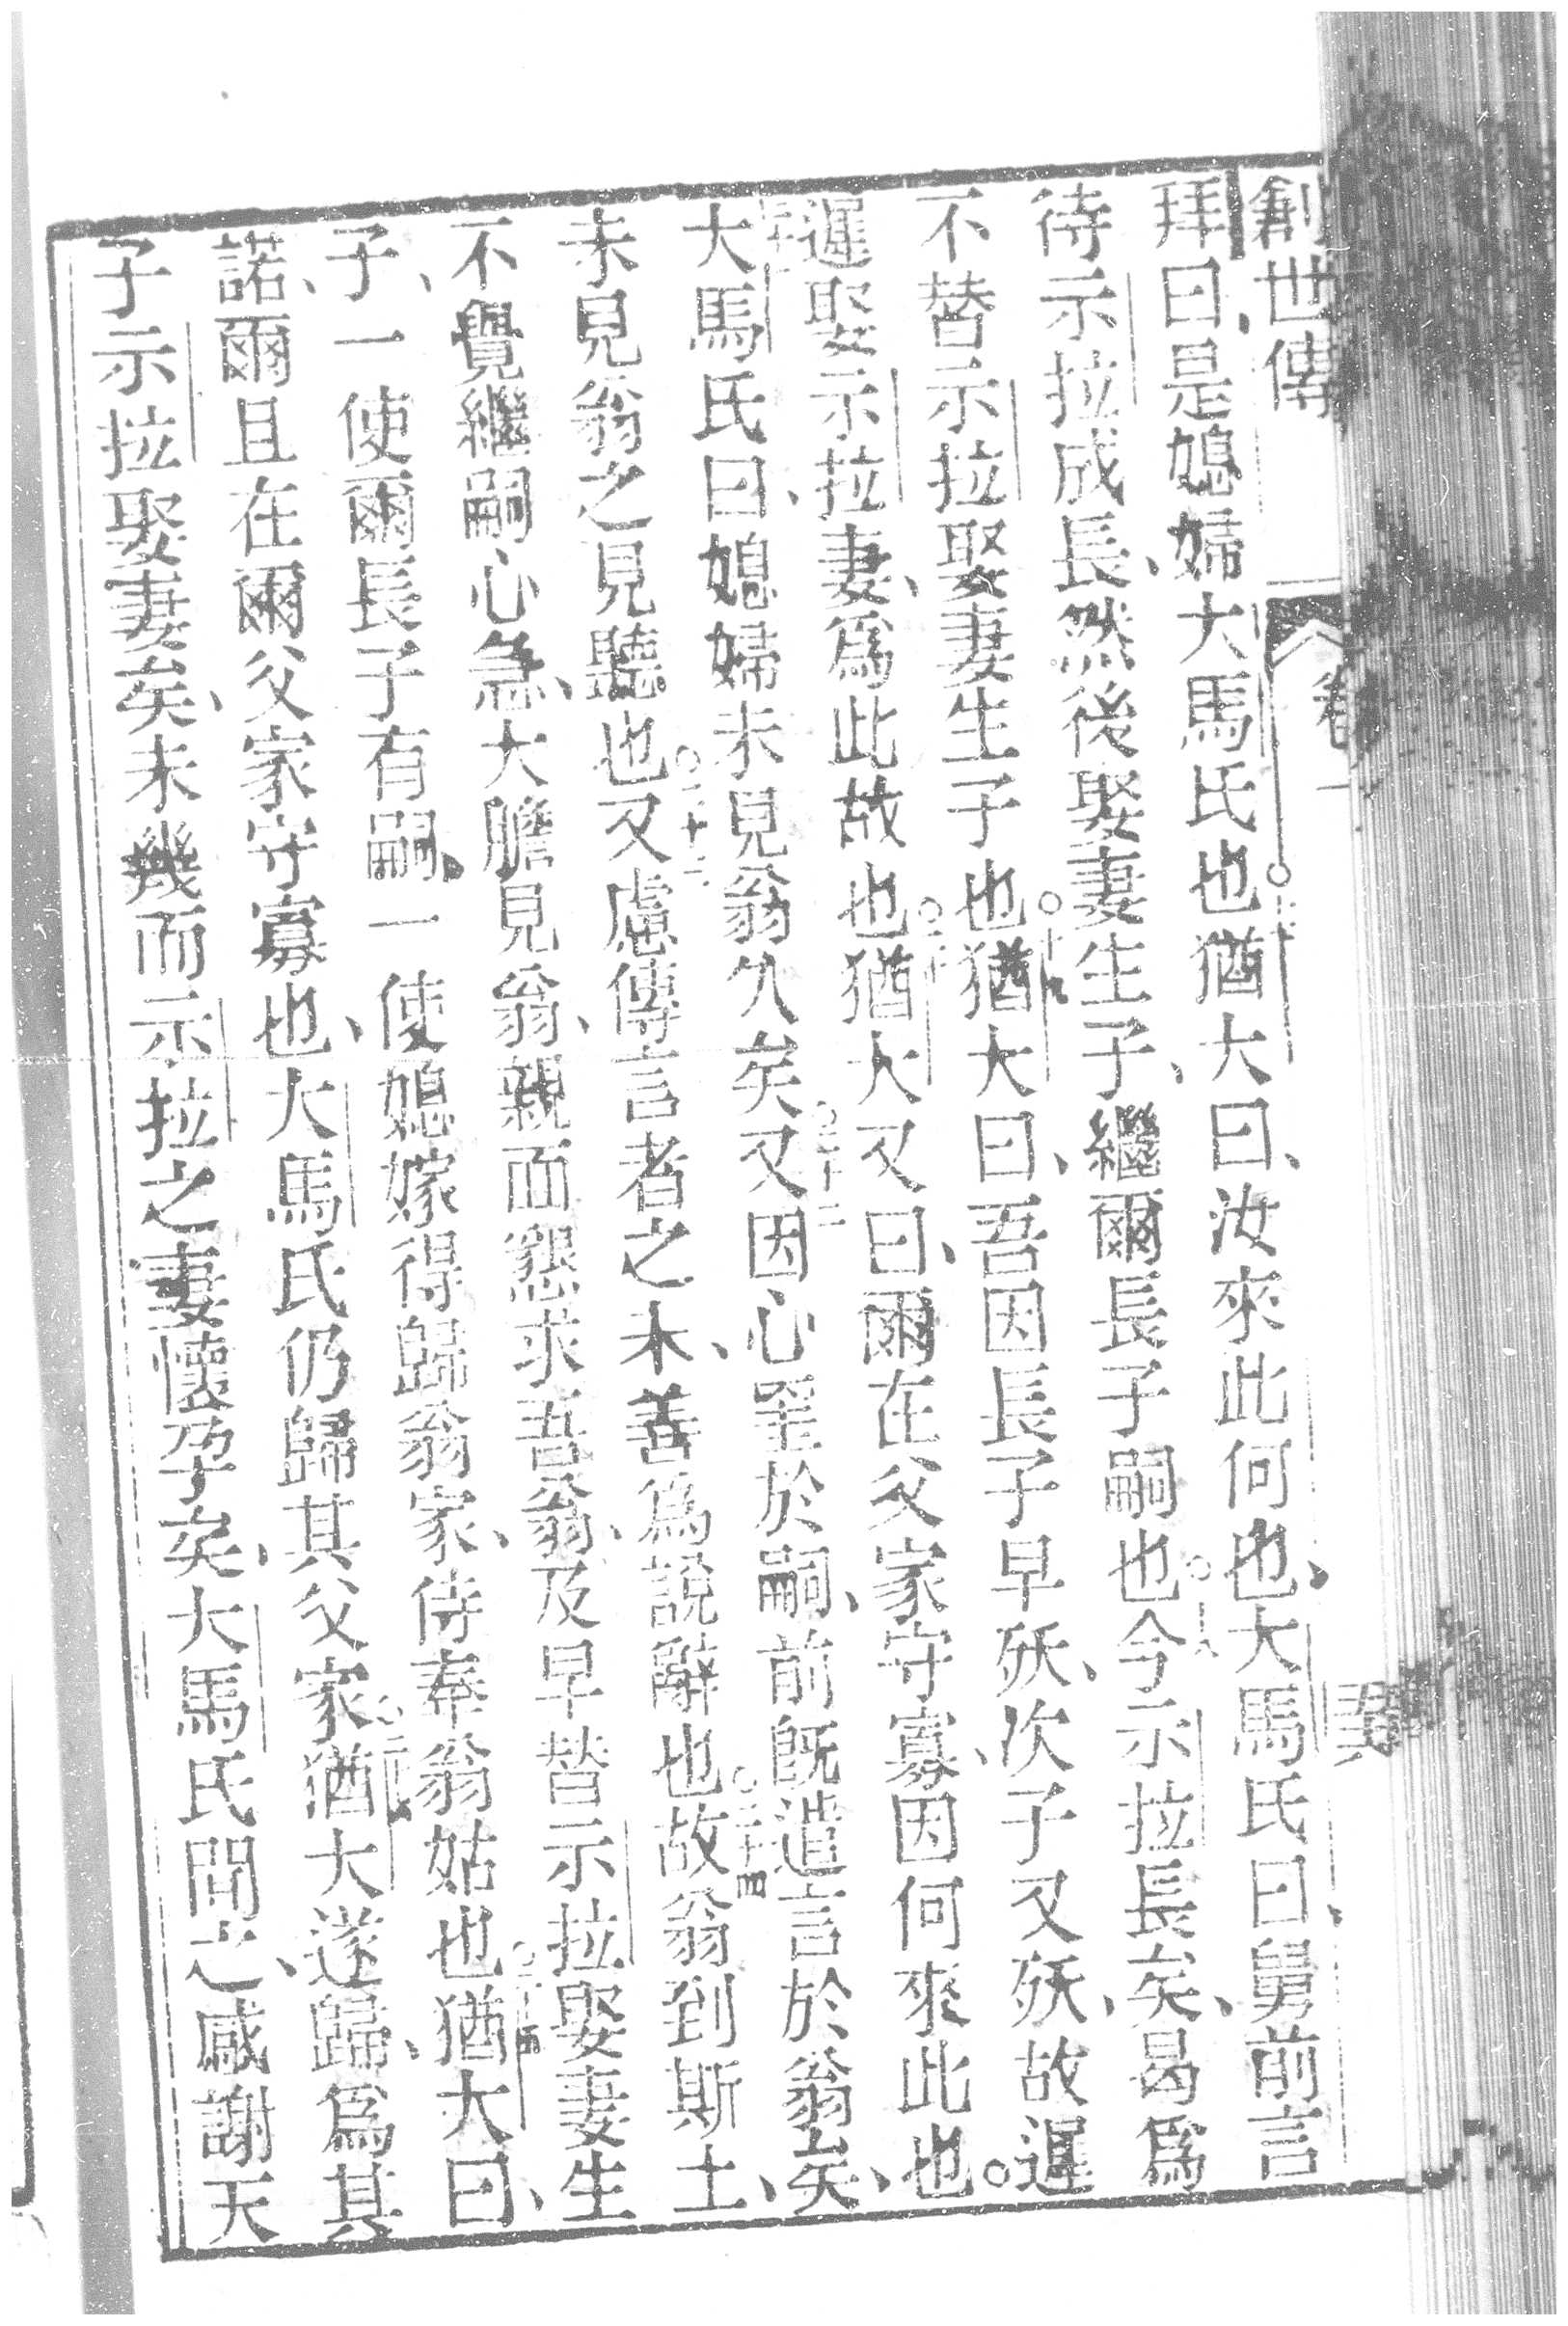 創世傳 卷一
拜曰、是媳婦大馬氏也猶大曰、汝來此何也、大馬氏曰、舅前言
待示拉成長、然後娶妻生子、繼爾長子嗣也今示拉長矣、曷爲
不替示拉娶妻生子也猶大曰、吾因長子早殀、次子又殀、故遲
遲娶示拉妻、爲此故也猶大又曰、爾在父家守寡、因何來此也。
大馬氏曰、媳婦未見翁久矣又因心罣於嗣、前既遣言於翁矣、
未見翁之見聽也又慮傳言者之未、善爲說辭也故翁到斯土、
不覺繼嗣心急、大膽見翁、親面懇求吾翁、及早替示拉娶妻生
子、一使爾長子有嗣、一使媳嫁得歸翁家、侍奉翁姑也猶大曰、
諾、爾且在爾父家守寡也、大馬氏仍歸其父家猶大遂歸、爲其
子示拉娶妻矣、未幾而示拉之妻懷孕矣、大馬氏聞之、感謝天